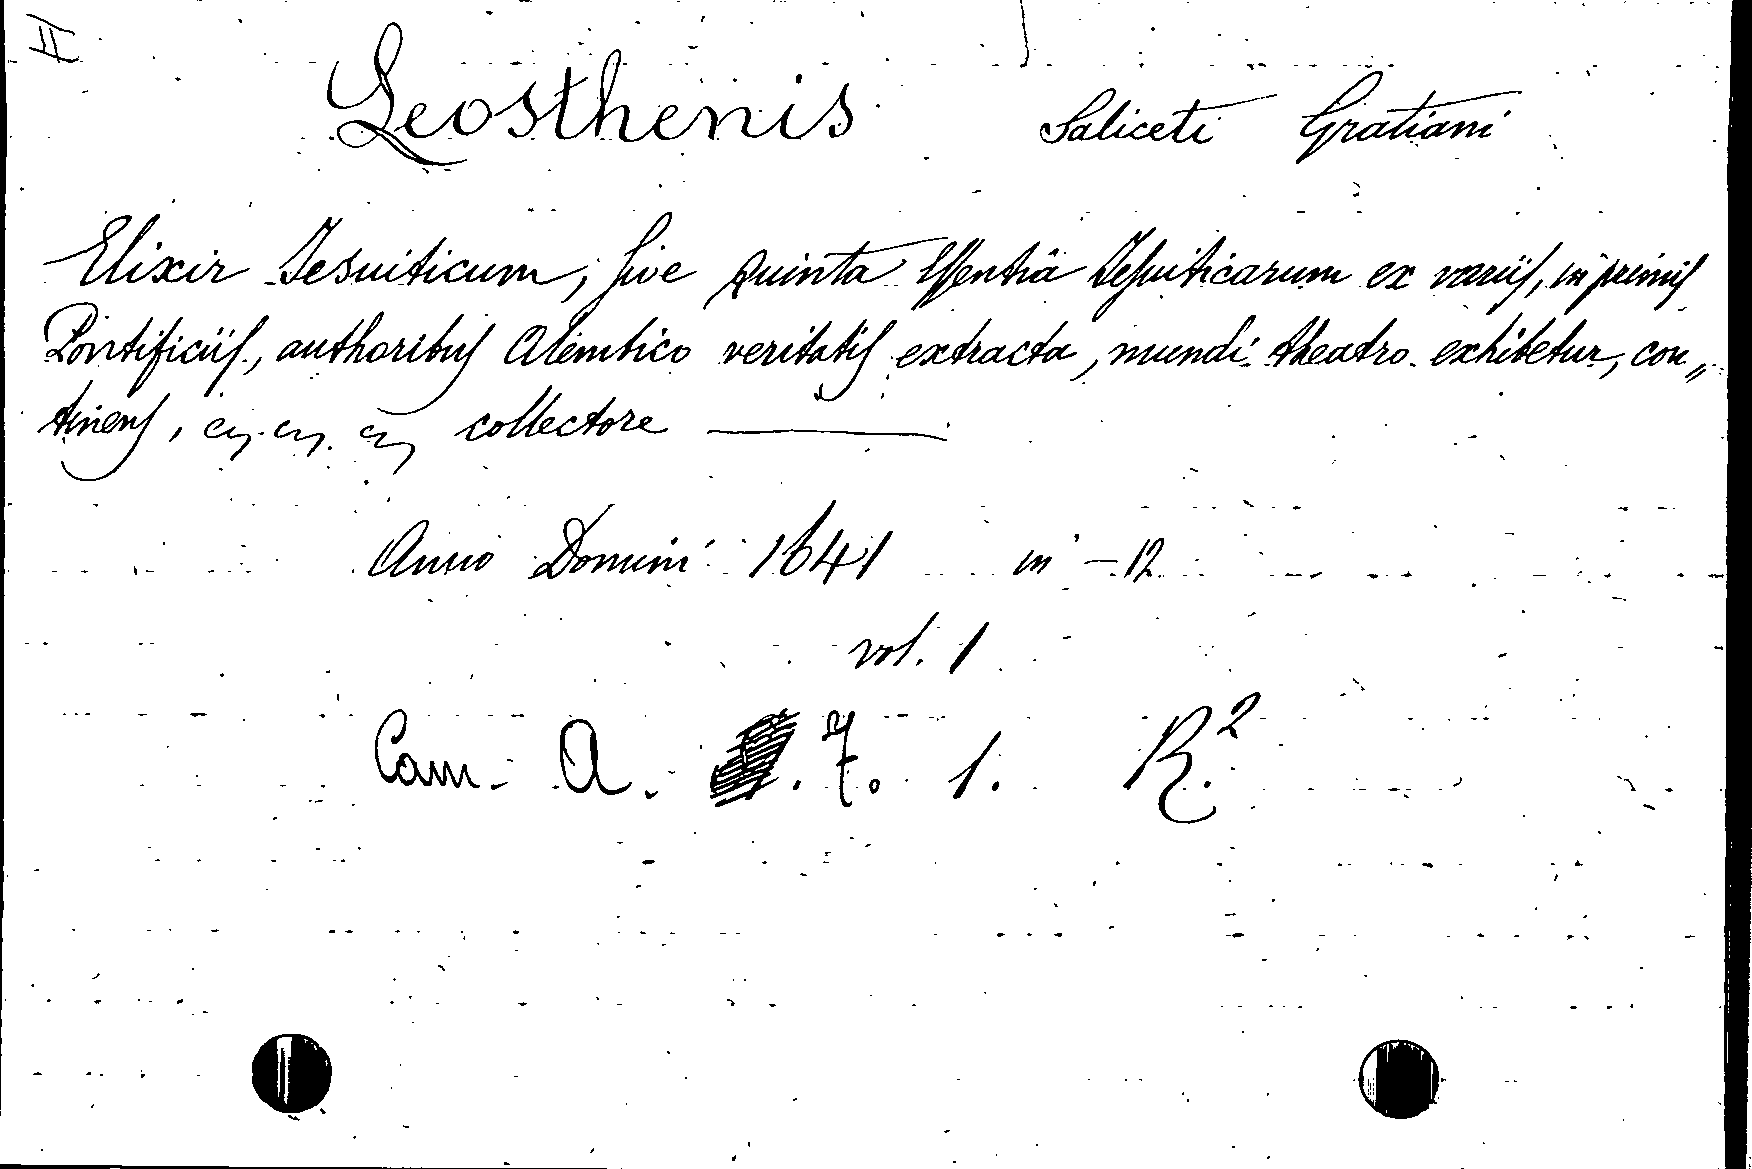 H
Leosthenis Saliceti Gratiani
Elixir Jesuiticum, sive Quinta Essentia Jesuiticarum ex variis, inprimis
Pontificiis, authoribus Alembico veritatis extracta, mundi theatro exhibetur, con„
tinens, collectore ———
Anno Domini 1641 in - 12
vol. 1
Cam. A. 7. 1. R.2